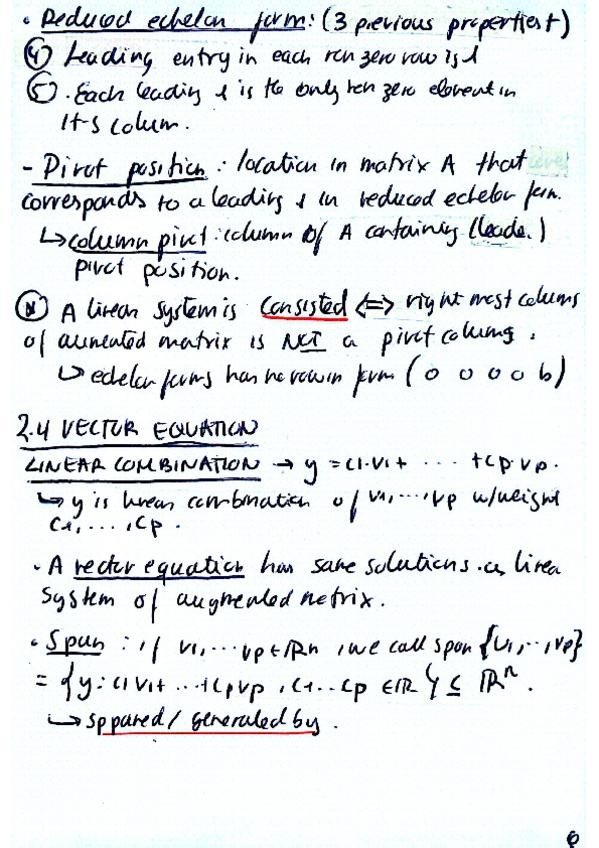 • Reduced echelon form: (3 previous properties +)
④ Leading entry in each non zero row is 1
⑤ . Each leading 1 is the only non zero element in
its colum.
- Pivot position : location in matrix A that
corresponds to a leading 1 in reduced echelon form.
↳ column pivot : column of A containing (leade.)
pivot position.
A linear system is consisted ⟺ right most column
of aumented matrix is NOT a pivot column.
↳ echelon forms has no row in form (0 0 0 0 b)
2.4 VECTOR EQUATION
LINEAR COMBINATION → y = c1·v1+ ···· +cp·vp.
↳ y is linear combination of v1,···,vp w/weight
c1,...,cp.
• A vector equation has same solutions as linear
system of augmented matrix.
• Span : if v1,···vp ∈ ℝn , we call span {v1,··,vp}
= {y: c1v1+ ···+cpvp , c1...cp ∈ ℝ} ⊆ ℝⁿ.
↳ sppaned / generated by.